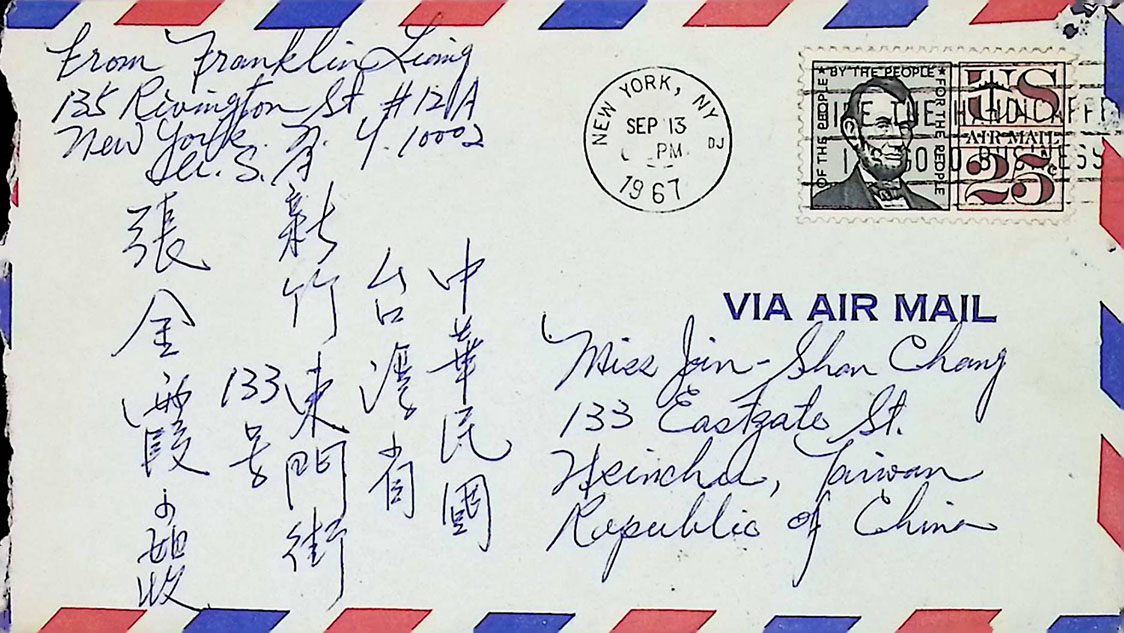 From Franklin Liing
135 Rivington St #12A
New York. N. Y. 10002
U. S. A
NEW YORK, NY
SEP 13
PM
1967
DJ
OF THE PEOPLE
★ BY THE PEOPLE ★
FOR THE PEOPLE
US
AIR MAIL
25c
HIRE THE HANDICAPPE
IT'S GOOD BUSINESS
VIA AIR MAIL
Miss Join-Shan Chang
133 Eastgate St.
Hsinchu, Taiwan
Republic of China
中華民國
台灣省
新竹東門街
133号
張金霞小姐收